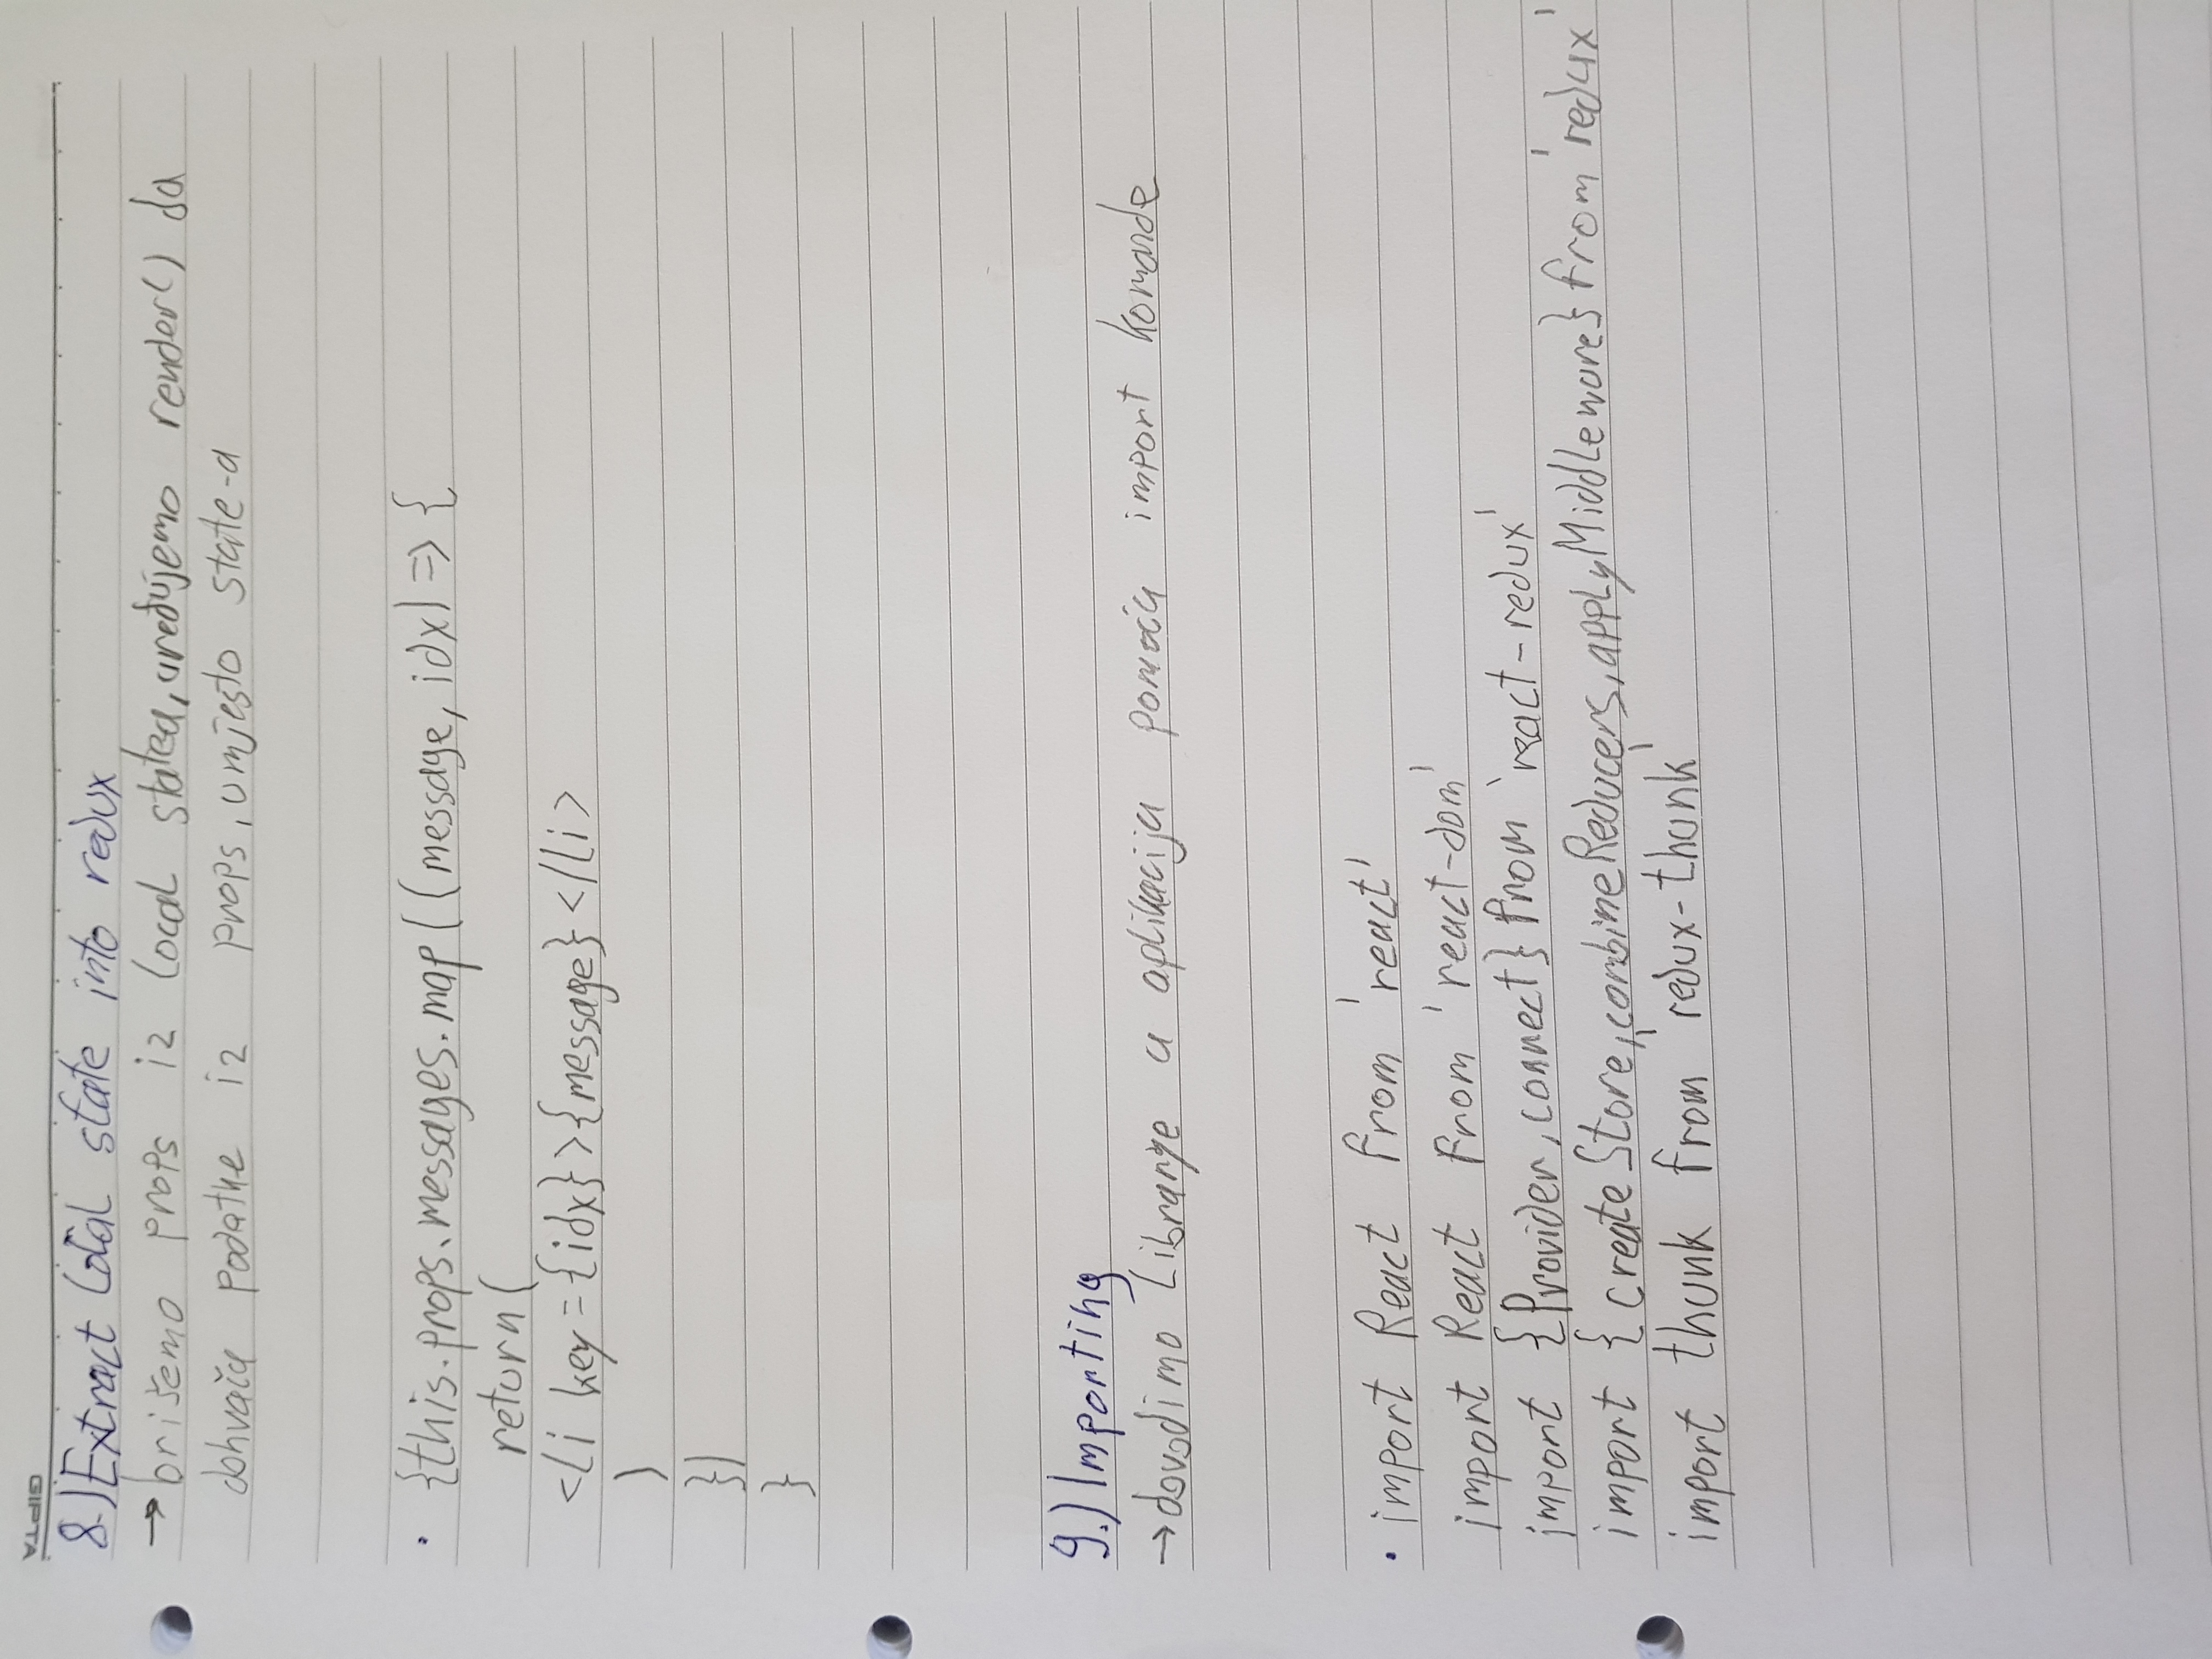 GIPTA
8.) Extract local state into redux
→ brišemo props iz local statea, uređujemo render() da
dohvaća podatke iz props, umjesto state-a
• {this.props.messages.map((message, idx) => {
return(
<li key={idx}>{message}</li>
)
})
}
9.) Importing
→ dovodimo libranje u aplikaciju pomoću import komande
• import React from 'react'
import React from 'react-dom'
import {Provider, connect} from 'react-redux'
import {createStore, combineReducers, applyMiddleware} from 'redux'
import thunk from 'redux-thunk'